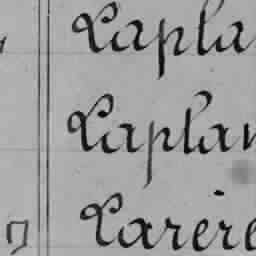 Lapla
Laplan
Larère